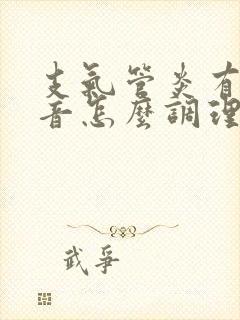 支氣管炎有
音怎麼調理
武爭